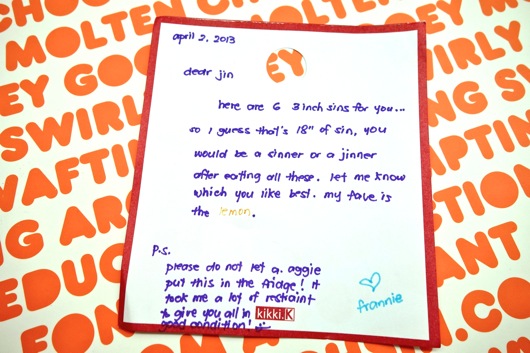 april 2, 2013
EY
dear jin
here are 6 3 inch sins for you...
so i guess that's 18" of sin, you
would be a sinner or a jinner
after eating all these. let me know
which you like best. my fave is
the lemon.
P.S.
please do not let a. aggie
put this in the fridge! it
took me a lot of restraint
to give you all in
good condition!
kikki.K
frannie
MOLTEN
EY GOO
SWIRL
WAFTIN
EDUC